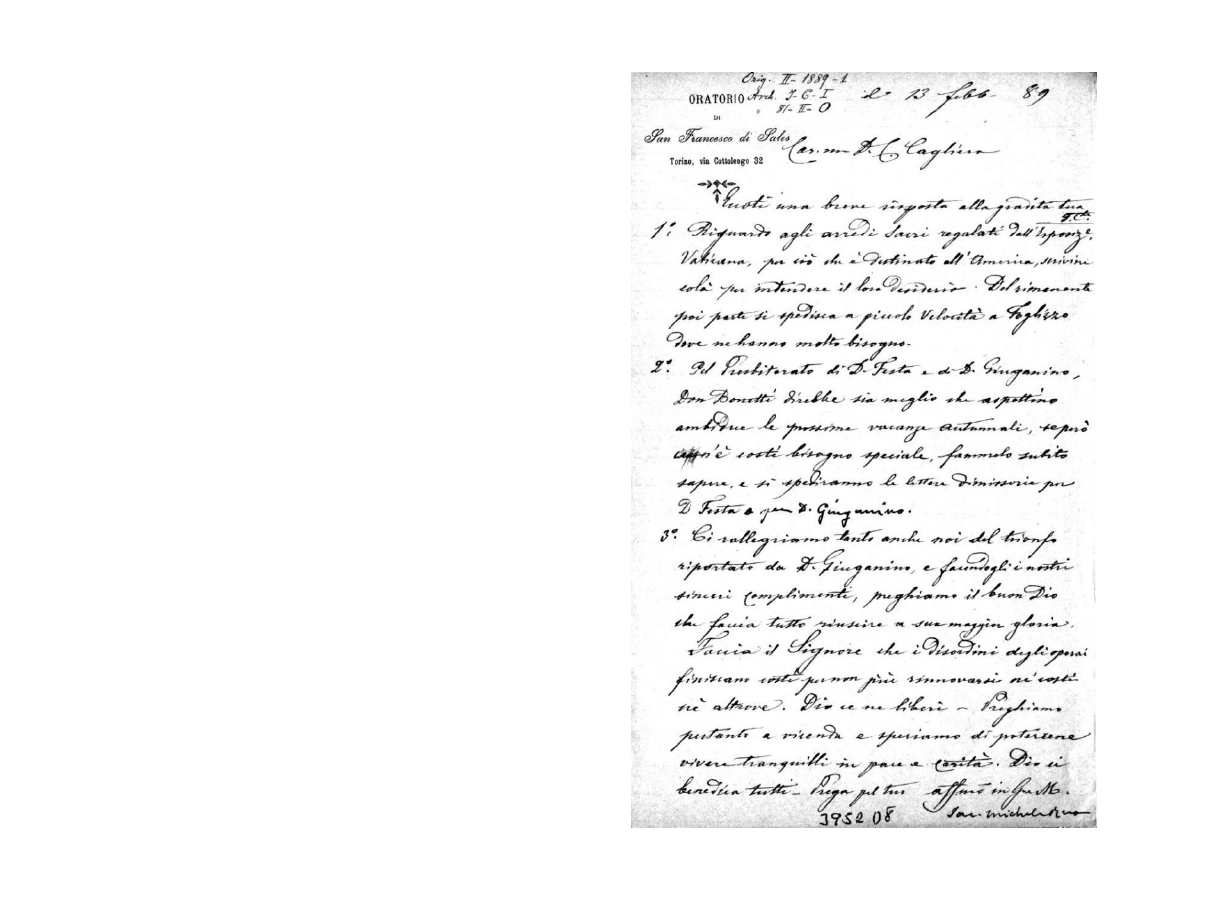 Orig. II- 1889-1
ORATORIO Arch. J-C-I il 13 febb- 89
DI 81- II- O
San Francesco di Sales
Torino, via Cottolengo 32
Car.mo D. C. Cagliero
Eccoti una breve risposta alla gradita tua
1º. Riguardo agli arredi Sacri regalati dall'Esposizº.
Vaticana, per ciò che è destinato all'America, scrivine
colà per intendere il loro desiderio. Del rimanente
poi parte si spedisca a piccola Velocità a Foglizzo
dove ne hanno molto bisogno.
2º. Pel Presbiterato di D. Festa e di D. Giuganino,
Don Bonetti direbbe sia meglio che aspettino
ambidue le prossime vacanze autunnali, se però
v'è costì bisogno speciale, fammelo subito
sapere, e si spediranno le lettere dimissorie per
D Festa e per D. Giuganino.
3º. Ci rallegriamo tanto anche noi del trionfo
riportato da D. Giuganino, e facendogli i nostri
sinceri complimenti, preghiamo il buon Dio
che faccia tutto riuscire a sua maggior gloria.
Faccia il Signore che i disordini degli operai
finiscano costì per non più rinnovarsi nè costì
nè altrove. Dio ce ne liberi - Preghiamo
pertanto a vicenda e speriamo di potercene
vivere tranquilli in pace e carità. Dio ci
benedica tutti - Prega pel tuo affmo in G. e M.
Sac. Michele Rua
3952 D8